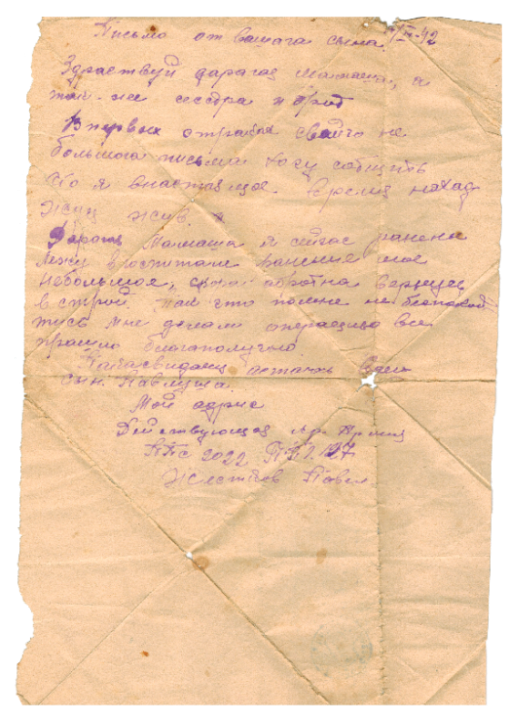 Письмо от вашага сына
Здраствуй дарогая мамаша, а
так-же сестра и брат
Впервых строках свойго не
большога письма хочу сообщить
что я внастаящее время нахад
жусь жив.
Дарогая мамаша я сичас ранена
лежу вгоспитале ранение мое
небольшое, скоро обратна вернусь
в строй так что помне не беспокой
тись мне делали операцию все
прошло благополучно
Пака свидания астаюсь ваш
сын. Павлуша.
Мой адрис
Действующая кр. Армия
ППС 2022
Павел